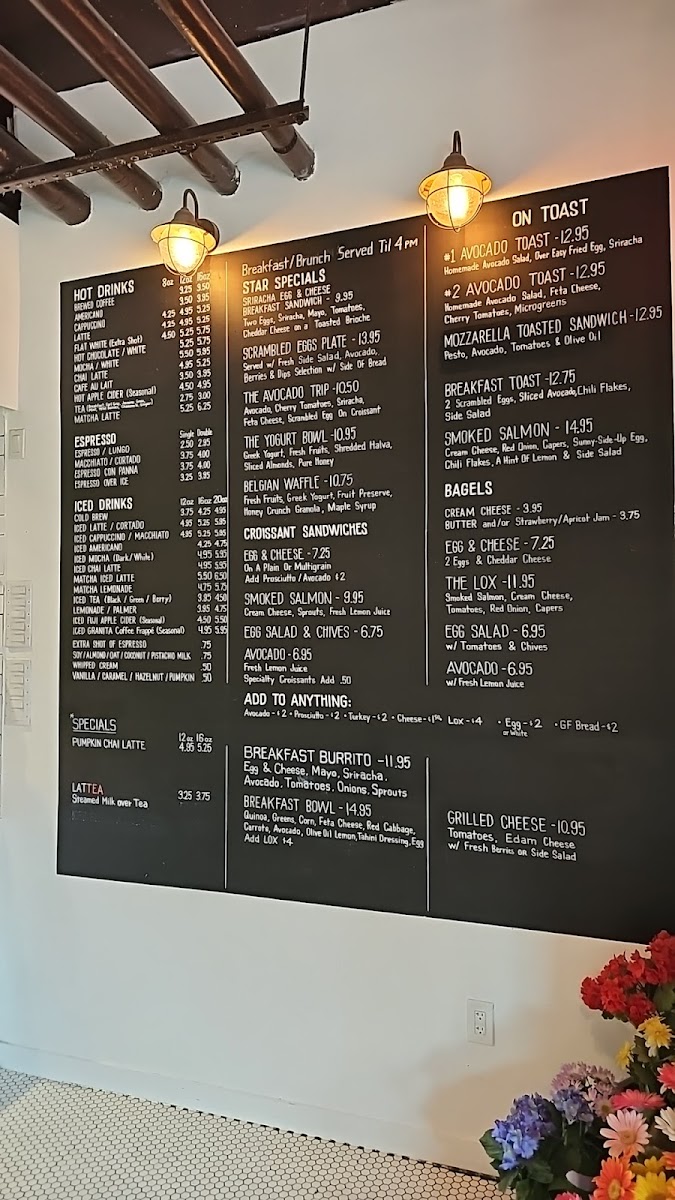 HOT DRINKS 8oz 12oz 16oz
BREWED COFFEE 3.25 3.50
AMERICANO 3.50 3.95
CAPPUCCINO 4.25 4.95 5.25
LATTE 4.25 4.95 5.25
FLAT WHITE (Extra Shot) 4.50 5.25 5.75
HOT CHOCOLATE / WHITE 5.25 5.75
MOCHA / WHITE 5.50 5.95
CHAI LATTE 4.95 5.25
CAFE AU LAIT 3.50 3.95
HOT APPLE CIDER (Seasonal) 4.50 4.95
TEA 2.75 3.00
MATCHA LATTE 5.25 6.25
ESPRESSO Single Double
ESPRESSO / LUNGO 2.50 2.95
MACCHIATO / CORTADO 3.75 4.00
ESPRESSO CON PANNA 3.75 4.00
ESPRESSO OVER ICE 3.25 3.95
ICED DRINKS 12oz 16oz 20oz
COLD BREW 3.75 4.25 4.95
ICED LATTE / CORTADO 4.95 5.25 5.95
ICED CAPPUCCINO / MACCHIATO 4.95 5.25 5.95
ICED AMERICANO 4.25 4.75
ICED MOCHA (Dark/White) 4.95 5.95
ICED CHAI LATTE 4.95 5.95
MATCHA ICED LATTE 5.50 6.50
MATCHA LEMONADE 4.75 5.75
ICED TEA (Black / Green / Berry) 3.85 4.50
LEMONADE / PALMER 3.85 4.75
ICED FUJI APPLE CIDER (Seasonal) 4.50 5.50
ICED GRANITA Coffee Frappé (Seasonal) 4.95 5.95
EXTRA SHOT OF ESPRESSO .75
SOY/ALMOND/OAT/COCONUT/PISTACHIO MILK .75
WHIPPED CREAM .50
VANILLA / CARAMEL / HAZELNUT / PUMPKIN .50
SPECIALS 12oz 16oz
PUMPKIN CHAI LATTE 4.95 5.25
LATTEA
Steamed Milk over Tea 3.25 3.75
Breakfast/Brunch Served Til 4PM
STAR SPECIALS
SRIRACHA EGG & CHEESE
BREAKFAST SANDWICH - 9.95
Two Eggs, Sriracha, Mayo, Tomatoes,
Cheddar Cheese on a Toasted Brioche
SCRAMBLED EGGS PLATE - 13.95
Served w/ Fresh Side Salad, Avocado,
Berries & Dips Selection w/ Side Of Bread
THE AVOCADO TRIP -10.50
Avocado, Cherry Tomatoes, Sriracha,
Feta Cheese, Scrambled Egg On Croissant
THE YOGURT BOWL -10.95
Greek Yogurt, Fresh Fruits, Shredded Halva,
Sliced Almonds, Pure Honey
BELGIAN WAFFLE - 10.75
Fresh Fruits, Greek Yogurt, Fruit Preserve,
Honey Crunch Granola, Maple Syrup
CROISSANT SANDWICHES
EGG & CHEESE - 7.25
On A Plain Or Multigrain
Add Prosciutto/Avocado $2
SMOKED SALMON - 9.95
Cream Cheese, Sprouts, Fresh Lemon Juice
EGG SALAD & CHIVES - 6.75
AVOCADO - 6.95
Fresh Lemon Juice
Specialty Croissants Add .50
ADD TO ANYTHING:
Avocado -$2 • Prosciutto - $2 • Turkey -$2 • Cheese -$1.50 Lox -$4 • Egg -$2 • GF Bread -$2
or White
BREAKFAST BURRITO -11.95
Egg & Cheese, Mayo, Sriracha,
Avocado, Tomatoes, Onions, Sprouts
BREAKFAST BOWL - 14.95
Quinoa, Greens, Corn, Feta Cheese, Red Cabbage,
Carrots, Avocado, Olive Oil Lemon, Tahini Dressing, Egg
Add LOX $4
ON TOAST
#1 AVOCADO TOAST -12.95
Homemade Avocado Salad, Over Easy Fried Egg, Sriracha
#2 AVOCADO TOAST -12.95
Homemade Avocado Salad, Feta Cheese,
Cherry Tomatoes, Microgreens
MOZZARELLA TOASTED SANDWICH -12.95
Pesto, Avocado, Tomatoes & Olive Oil
BREAKFAST TOAST -12.75
2 Scrambled Eggs, Sliced Avocado, Chili Flakes,
Side Salad
SMOKED SALMON - 14.95
Cream Cheese, Red Onion, Capers, Sunny-Side-Up Egg,
Chili Flakes, A Hint Of Lemon & Side Salad
BAGELS
CREAM CHEESE - 3.95
BUTTER and/or Strawberry/Apricot Jam - 3.75
EGG & CHEESE - 7.25
2 Eggs & Cheddar Cheese
THE LOX -11.95
Smoked Salmon, Cream Cheese,
Tomatoes, Red Onion, Capers
EGG SALAD - 6.95
w/ Tomatoes & Chives
AVOCADO - 6.95
w/ Fresh Lemon Juice
GRILLED CHEESE -10.95
Tomatoes, Edam Cheese
w/ Fresh Berries OR Side Salad